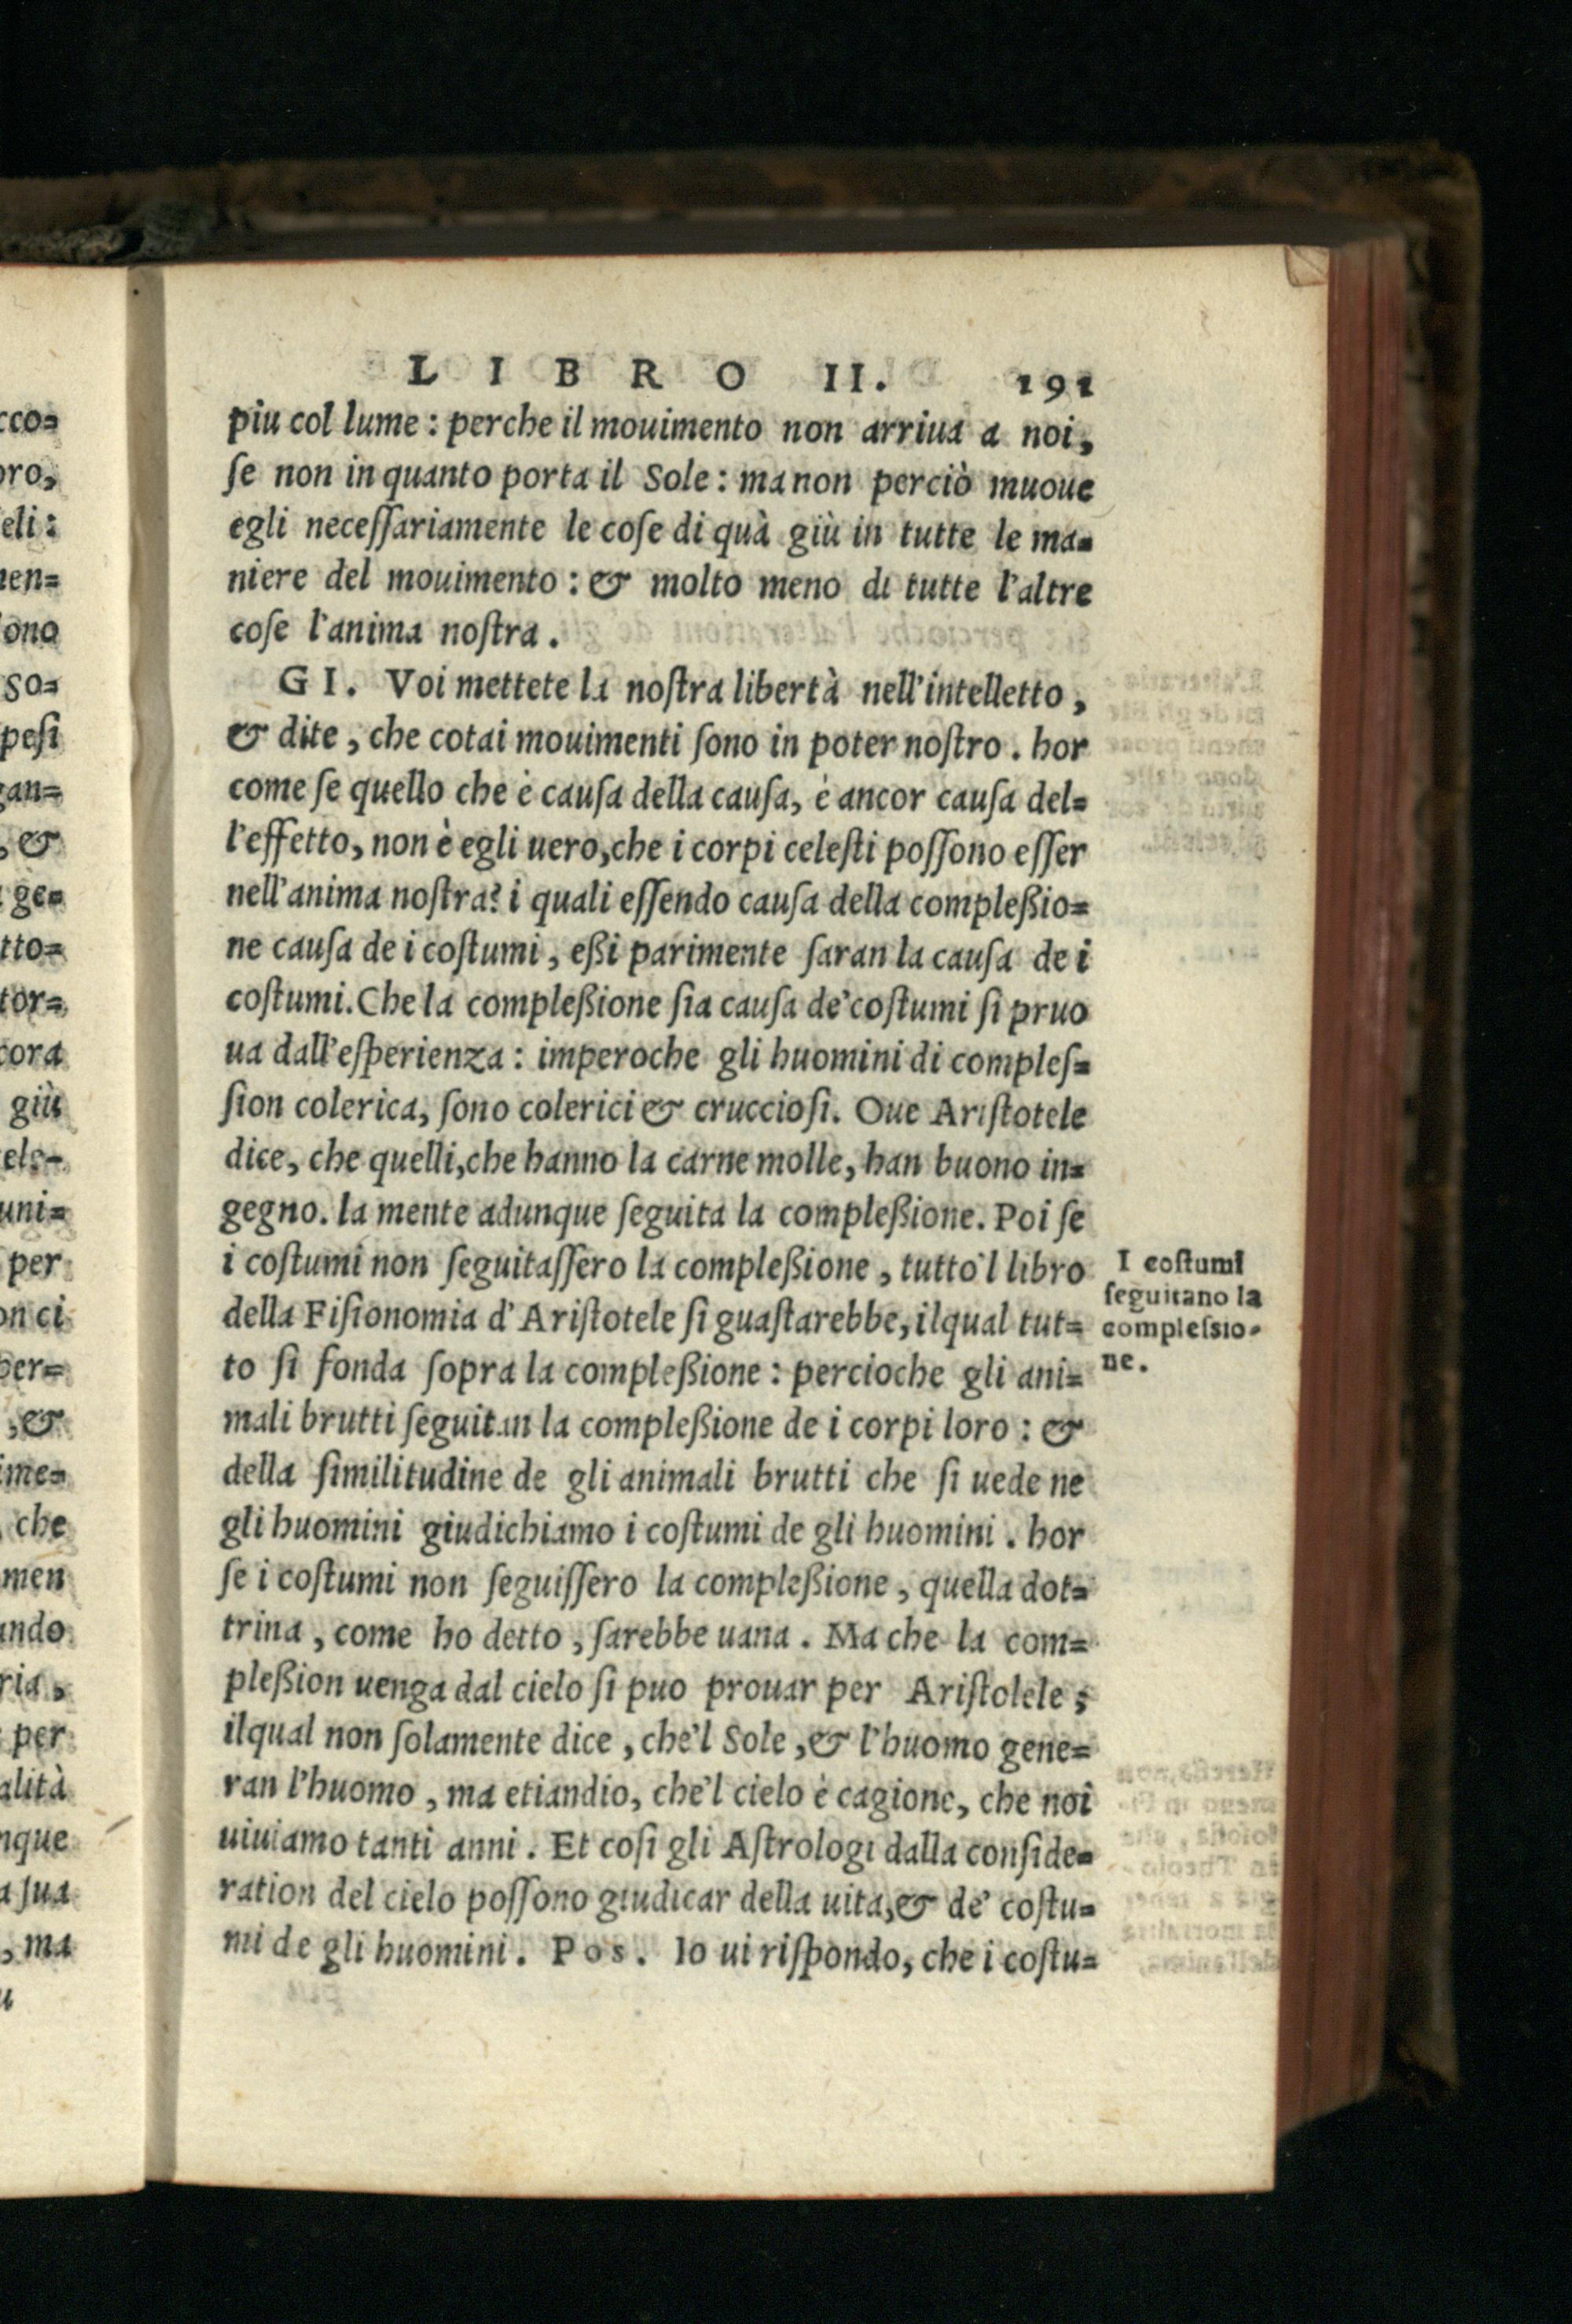 LIBRO II. 191
piu col lume : perche il mouimento non arriua a noi,
ſe non in quanto porta il Sole : ma non perciò muoue
egli neceſſariamente le coſe di quà giù in tutte le ma=
niere del mouimento : & molto meno di tutte l'altre
coſe l'anima noſtra .
GI. Voi mettete la noſtra libertà nell'intelletto ,
& dite , che cotai mouimenti ſono in poter noſtro . hor
come ſe quello che è cauſa della cauſa, è ancor cauſa del=
l'effetto, non è egli uero, che i corpi celeſti poſſono eſſer
nell'anima noſtra? i quali eſſendo cauſa della compleßio=
ne cauſa de i coſtumi , eßi parimente ſaran la cauſa de i
coſtumi. Che la compleßione ſia cauſa de' coſtumi ſi pruo
ua dall'eſperienza : imperoche gli huomini di compleſ=
ſion colerica, ſono colerici & cruccioſi. Oue Ariſtotele
dice, che quelli, che hanno la carne molle, han buono in=
gegno. la mente adunque ſeguita la compleßione. Poi ſe
i coſtumi non ſeguitaſſero la compleßione , tutto'l libro
della Fiſionomia d'Ariſtotele ſi guaſtarebbe, ilqual tut=
to ſi fonda ſopra la compleßione : percioche gli ani=
mali brutti ſeguitan la compleßione de i corpi loro : &
della ſimilitudine de gli animali brutti che ſi uede ne
gli huomini giudichiamo i coſtumi de gli huomini . hor
ſe i coſtumi non ſeguiſſero la compleßione , quella dot=
trina , come ho detto , ſarebbe uana . Ma che la com=
pleßion uenga dal cielo ſi puo prouar per Ariſtolele ;
ilqual non ſolamente dice , che'l Sole , & l'huomo gene=
ran l'huomo , ma etiandio, che'l cielo è cagione, che noi
uiuiamo tanti anni . Et coſi gli Aſtrologi dalla conſide=
ration del cielo poſſono giudicar della uita, & de' coſtu=
mi de gli huomini . Pos. Io ui riſpondo, che i coſtu=
I coſtumi
ſeguitano la
compleſsio-
ne.